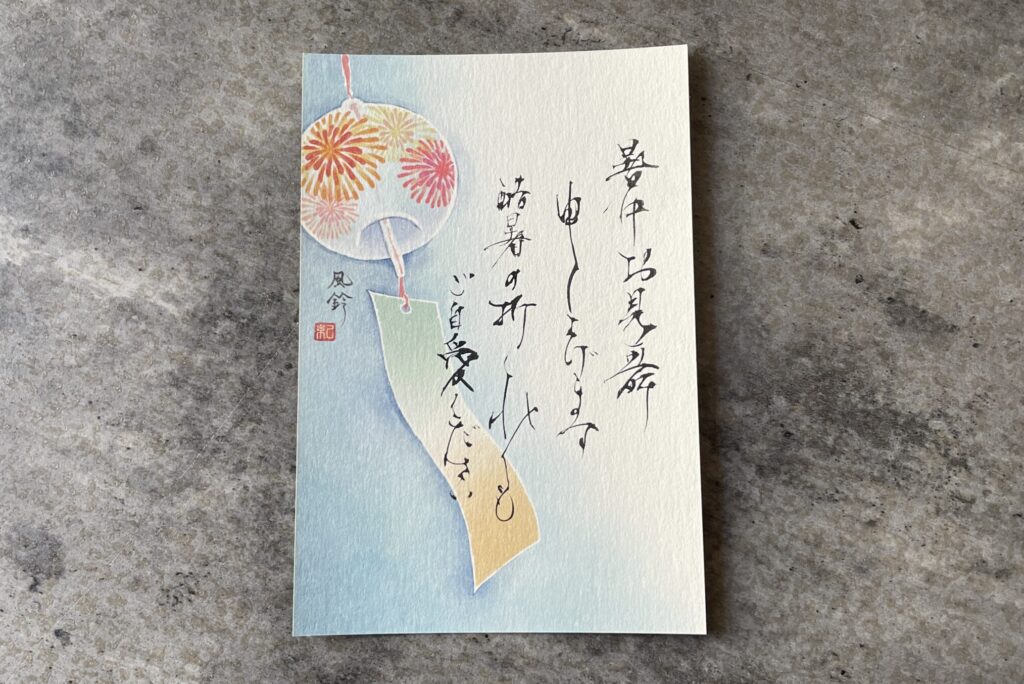 暑中お見舞
申し上げます
酷暑の折くれぐれも
ご自愛ください
風鈴